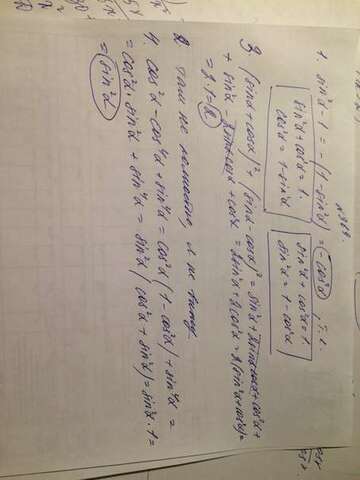 № 364.
1. sin²α − 1 = −(1 − sin²α) = −cos²α, т.к.
sin²α + cos²α = 1.
cos²α = 1 − sin²α
sin²α + cos²α = 1
sin²α = 1 − cos²α
3. (sinα + cosα)² + (sinα − cosα)² = sin²α + 2sinαcosα + cos²α +
+ sin²α − 2sinαcosα + cos²α = 2sin²α + 2cos²α = 2(sin²α + cos²α) =
= 2·1 = 2
2. там не полностью, я не вижу
4. cos²α − cos⁴α + sin⁴α = cos²α(1 − cos²α) + sin⁴α =
= cos²α · sin²α + sin⁴α = sin²α(cos²α + sin²α) = sin²α · 1 =
= sin²α